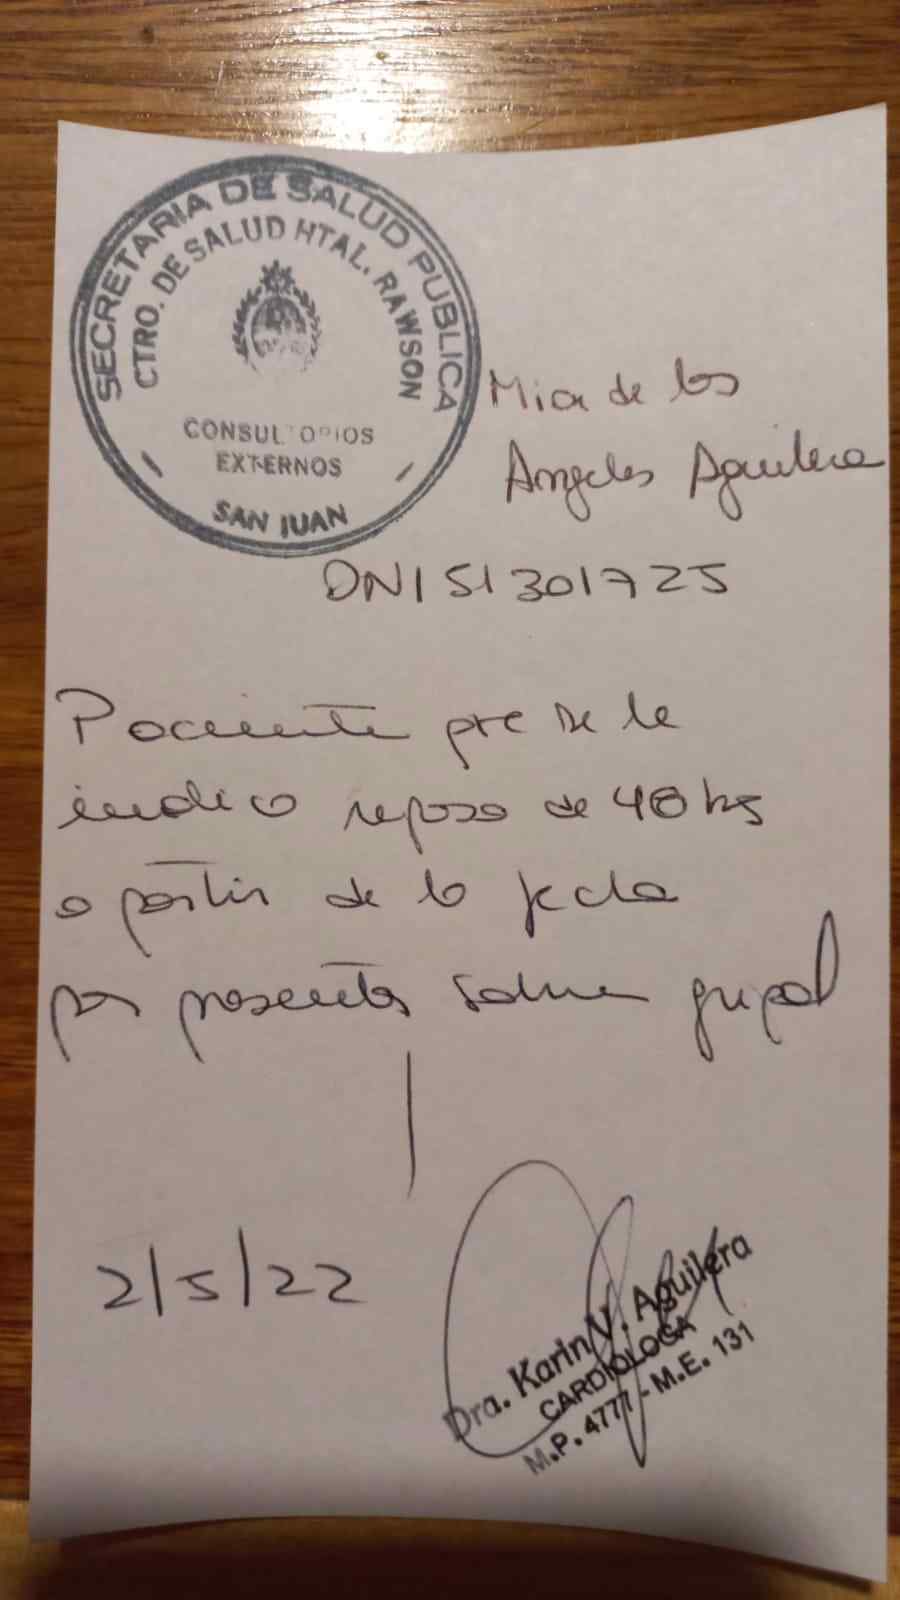 SECRETARIA DE SALUD PUBLICA
CTRO. DE SALUD HTAL. RAWSON
CONSULTORIOS
EXTERNOS
SAN JUAN
Mia de los
Angeles Aguilera
DNI 51301725
Paciente que se le
indico reposo de 48 hs
a partir de la fecha
por presentar gripal
2/5/22
Dra. Karin V. Aguilera
CARDIOLOGA
M.P. 4777 - M.E. 131